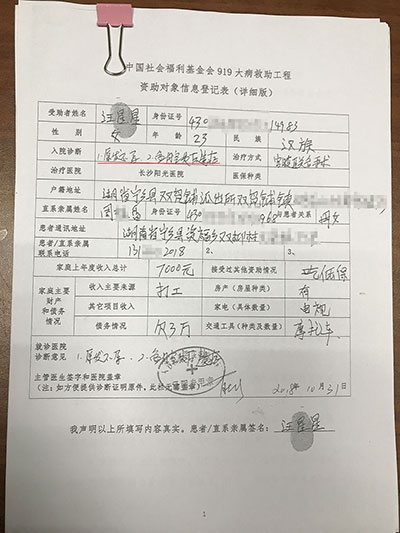 中国社会福利基金会919大病救助工程
资助对象信息登记表（详细版）
受助者姓名 汪星星 身份证号 430 14983
性别 女 年龄 23 民族 汉族
入院诊断 1.原发不孕 2. 治疗方式 宫腹腔联合手术
治疗医院 长沙阳光医院 医保种类
户籍地址 湖南省宁乡县双凫铺派出所双凫铺镇
直系亲属姓名 周 身份证号 430 968 与患者关系 母女
患者通讯地址 湖南省宁乡县资福乡
患者/直系亲属
联系电话 13 2018 2、 3、
家庭上年度收入总计 7000元 接受过其他资助情况 吃低保
家庭主要
财产
和债务
情况
收入主要来源 打工 房产（房屋种类） 有
其它项目收入 家电（具体数量） 电视
债务情况 欠3万 交通工具（种类及数量） 摩托车
就诊医院
诊断意见 1.原发不孕 2.
主管医生签字和医院盖章
（注：如方便提供诊断证明原件，此处无需盖章） 2018年10月31日
我声明以上所填写内容真实。患者/直系亲属签名： 汪星星
1